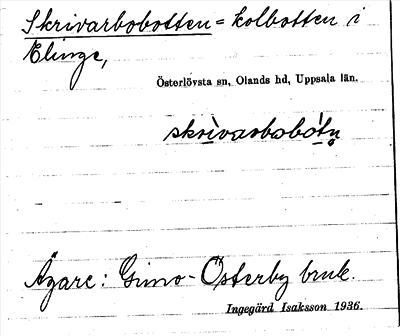 Skrivarbobotten = kolbotten i
Elinge,
Österlövsta sn, Olands hd, Uppsala län.
skrìvarbobótn̥
Ägare: Gimo-Österby bruk.
Ingegärd Isaksson 1936.